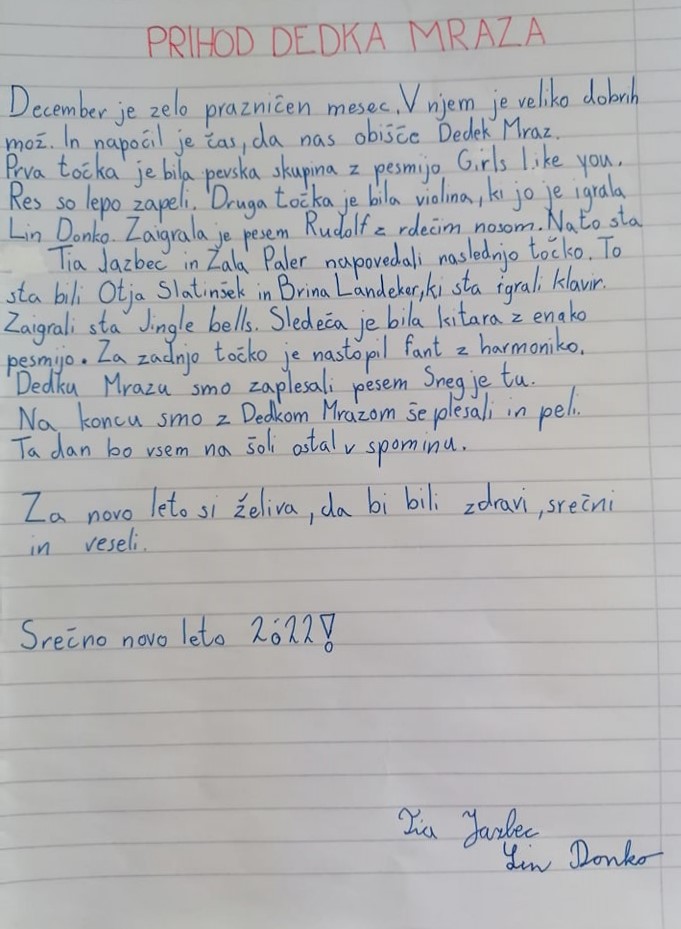 PRIHOD DEDKA MRAZA
December je zelo prazničen mesec. V njem je veliko dobrih
mož. In napočil je čas, da nas obišče Dedek Mraz.
Prva točka je bila pevska skupina z pesmijo Girls like you.
Res so lepo zapeli. Druga točka je bila violina, ki jo je igrala
Lin Donko. Zaigrala je pesem Rudolf z rdečim nosom. Nato sta
Tia Jazbec in Žala Paler napovedali naslednjo točko. To
sta bili Otja Slatinšek in Brina Landeker, ki sta igrali klavir.
Zaigrali sta Jingle bells. Sledeča je bila kitara z enako
pesmijo. Za zadnjo točko je nastopil fant z harmoniko.
Dedku Mrazu smo zaplesali pesem Sneg je tu.
Na koncu smo z Dedkom Mrazom še plesali in peli.
Ta dan bo vsem na šoli ostal v spominu.
Za novo leto si želiva, da bi bili zdravi, srečni
in veseli.
Srečno novo leto 2022!
Tia Jazbec
Lin Donko